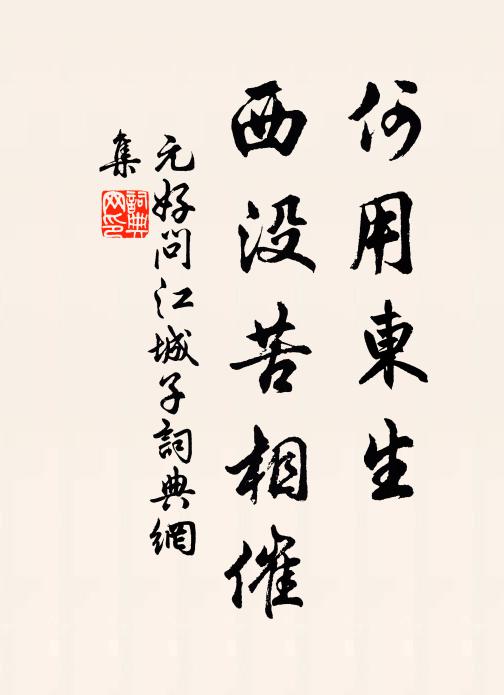 何用東生
西没苦相催
元好问江城子詞典網
集
詞典网印